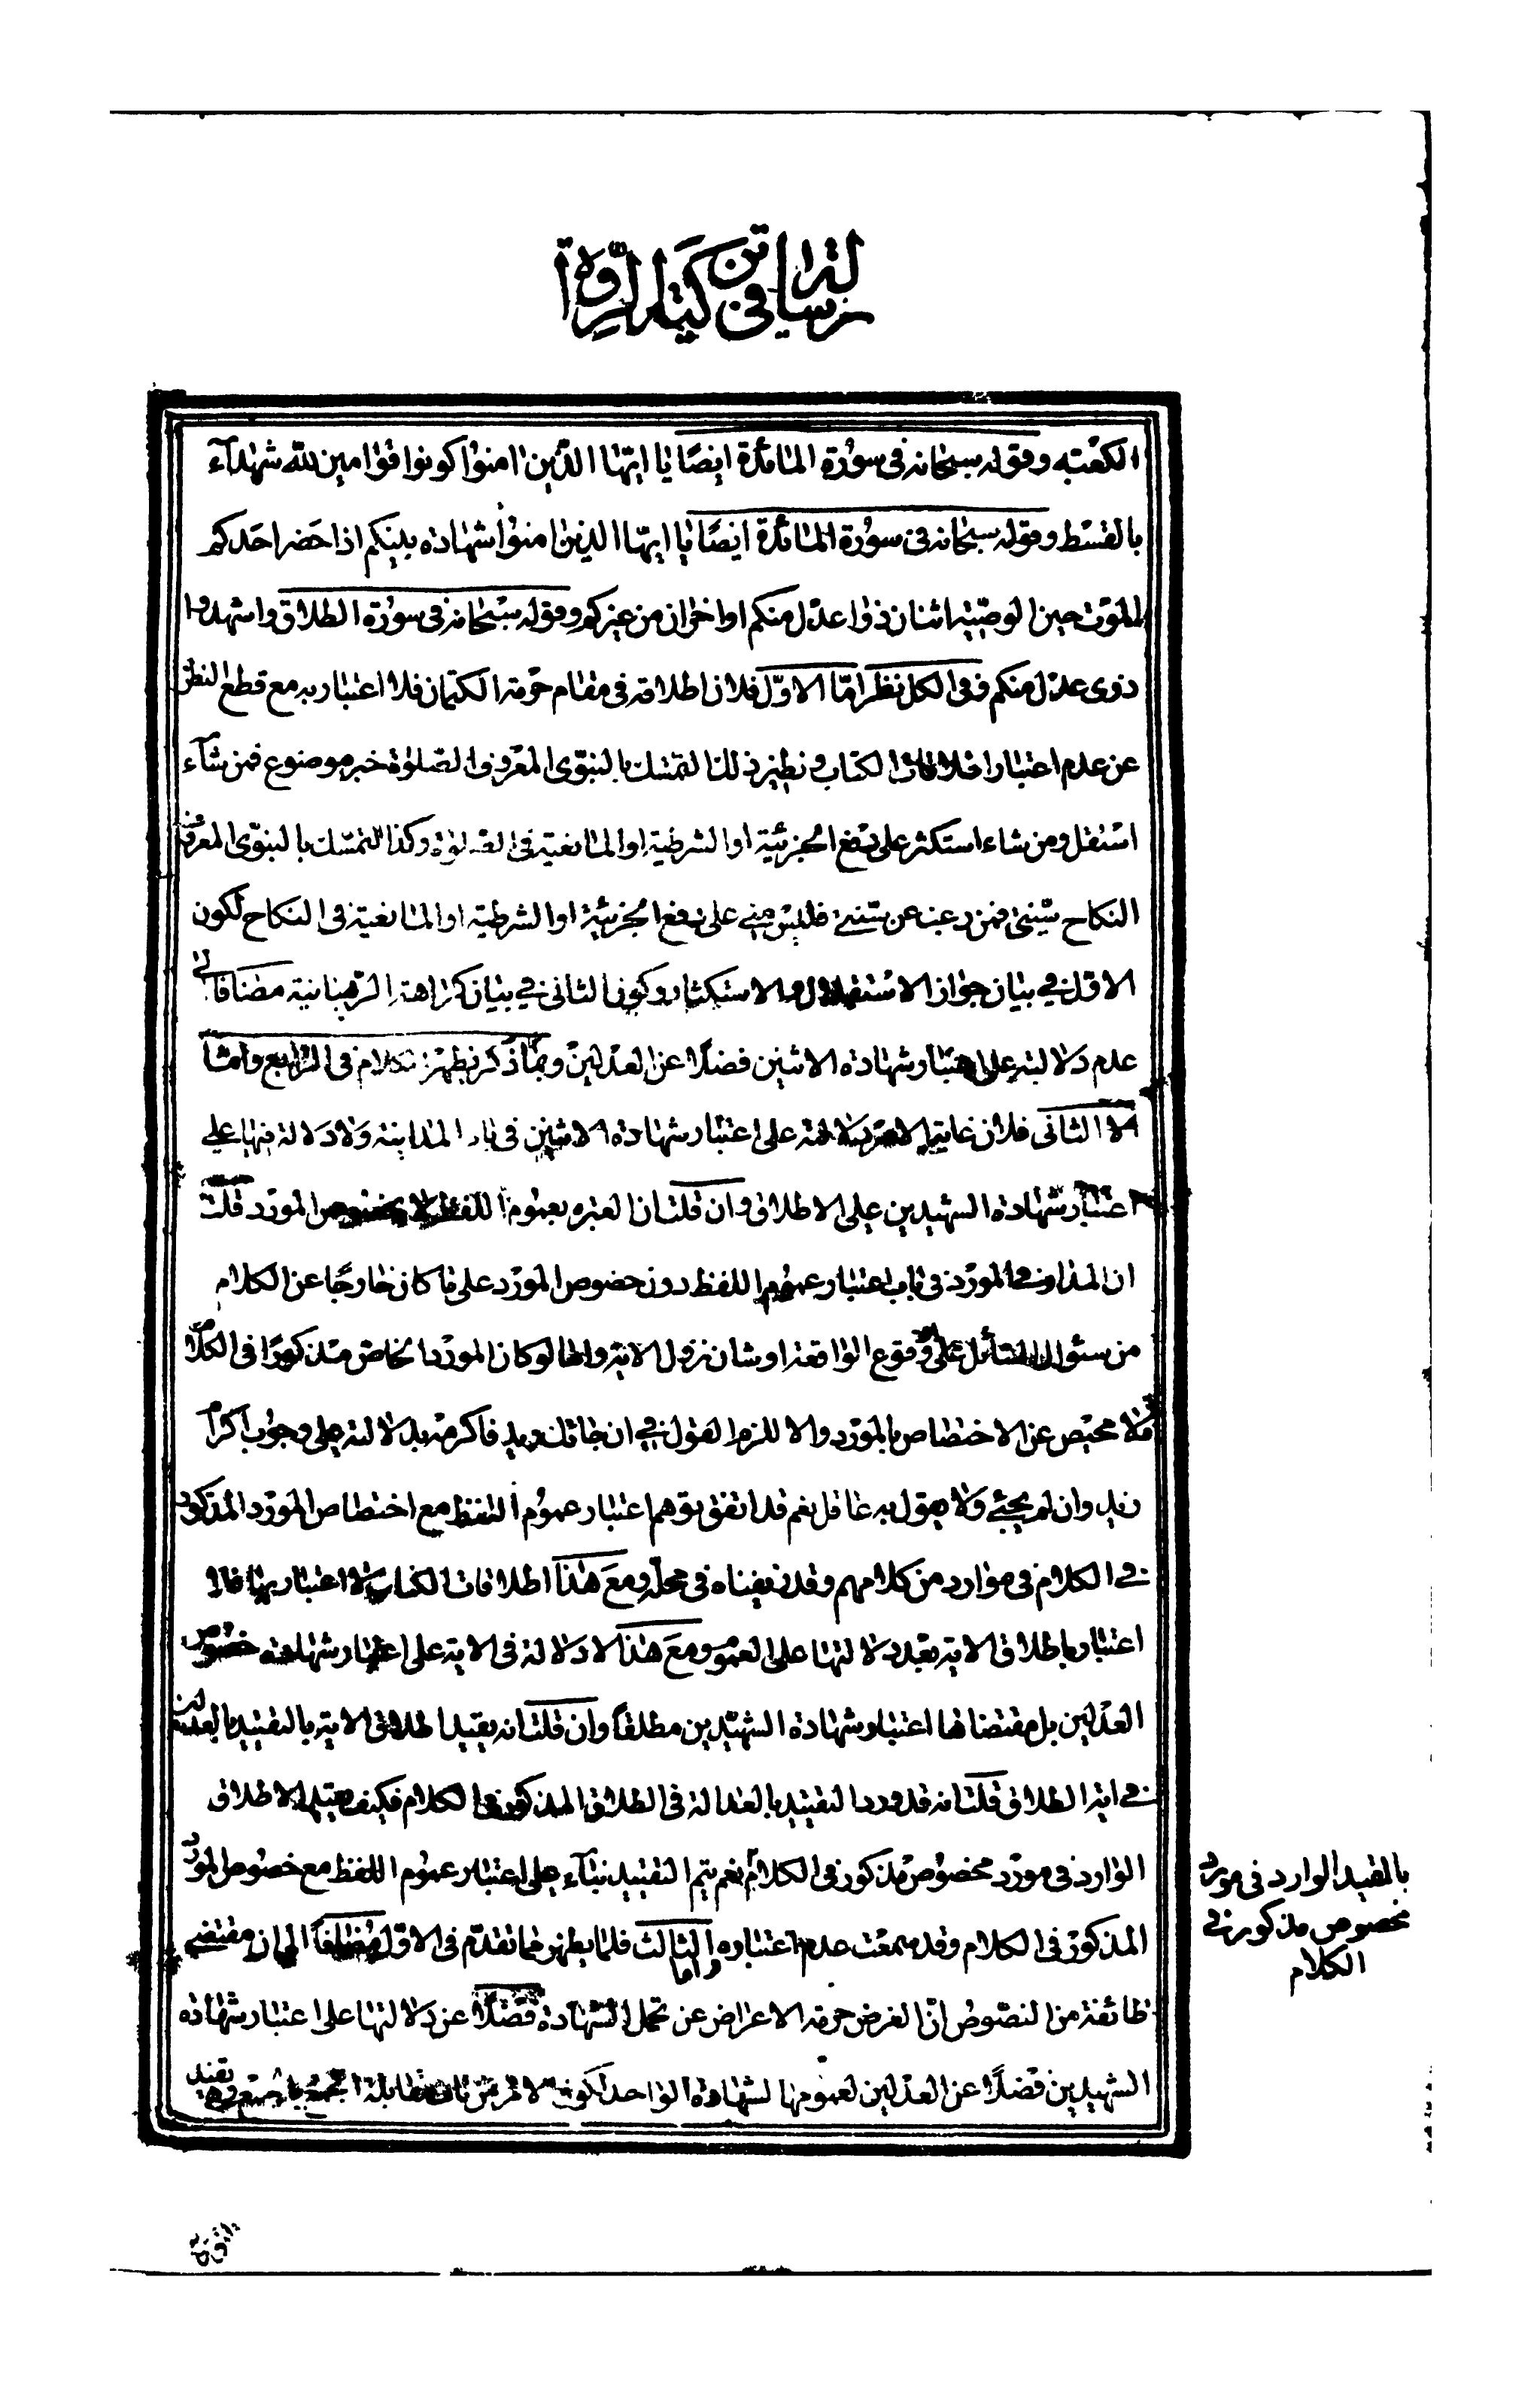 رسالة في تزكية الرواة
الكعبه وقوله سبحانه في سورة المائدة ايضا يا ايها الذين امنوا كونوا قوامين لله شهدآء
بالقسط وقوله سبحانه في سورة المائدة ايضا يا ايها الذين امنوا شهادة بينكم اذا حضر احدكم
الموت حين الوصية اثنان ذوا عدل منكم او اخران من غيركم وقوله سبحانه في سورة الطلاق واشهدوا
ذوى عدل منكم وفي الكل نظر امّا الاوّل فلان اطلاقه في مقام حرمة الكتمان فلا اعتبار به مع قطع النظر
عن عدم اعتبار اطلاقات الكتاب ونظير ذلك التمسك بالنبوّى المعروف الصلوة خير موضوع فمن شآء
استقل ومن شاء استكثر على دفع الجزئية او الشرطية او المانعية في الصلوة وكذا التمسّك بالنبوّى المعروف
النكاح سنّتى فمن رغب عن سنتى فليس منى على دفع الجزئية او الشرطية او المانعية في النكاح لكون
الاول في بيان جواز الاستقلال والاستكثار وكون الثانى في بيان كراهة الرهبانية مضافا الى
عدم دلالته على اعتبار شهادة الاثنين فضلا عن العدلين وبما ذكر يظهر الكلام في الرابع وامّا
الثانى فلان غاية الامر دلالته على اعتبار شهادة الاثنين في باب المداينة ولا دلالة فيها على
اعتبار شهادة الشهيدين على الاطلاق وان قلت ان العبرة بعموم اللفظ لا بخصوص المورد قلت
ان المدار في المورد في باب اعتبار عموم اللفظ دون خصوص المورد على ما كان خارجا عن الكلام
من سئوال السائل على وقوع الواقعة او شان نزول الاية واما لو كان المورد الخاص مذكورا في الكلام
فلا محيص عن الاختصاص بالمورد والا للزم القول في ان جائك زيد فاكرمه بدلالته على وجوب اكرام
زيد وان لم يجئ ولا يقول به عاقل نعم قد اتفق توهم اعتبار عموم اللفظ مع اختصاص المورد المذكور
في الكلام في موارد من كلامهم وقد زيفناه في محله ومع هذا اطلاقات الكتاب لا اعتبار بها فلا
اعتبار باطلاق الاية بعد دلالتها على العموم ومع هذا لا دلالة في الاية على اعتبار شهادة خصوص
العدلين بل مقتضاها اعتبار شهادة الشهيدين مطلقا وان قلت انه يقيد اطلاق الاية بالتقييد بالعدلين
في اية الطلاق قلت انه قد ورد التقييد بالعدالة في الطلاق المذكور في الكلام فكيف يقيد الاطلاق
الوارد في مورد مخصوص مذكور في الكلام نعم يتم التقييد بنآء على اعتبار عموم اللفظ مع خصوص المورد
المذكور في الكلام وقد سمعت عدم اعتباره واما الثالث فلما يظهر مما تقدّم في الاول مضافا الى ان مقتضى
طائفة من النصوص انّ الغرض حرمة الاعراض عن تحمل الشهادة فضلا عن دلالتها على اعتبار شهادة
الشهيدين فضلا عن العدلين لعمومها لشهادة الواحد لكون الامر من باب مقابلة الجمع بالجمع
بالمقيد الوارد في مورد
مخصوص مذكور في
الكلام